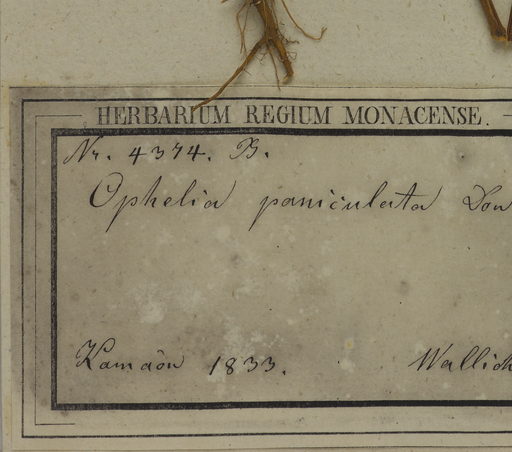 HERBARIUM REGIUM MONACENSE.
Nr. 4374. B.
Ophelia paniculata Don
Kamaon 1833. Wallich